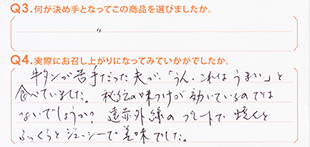 Q3.何が決め手となってこの商品を選びましたか。
〃
Q4.実際にお召し上がりになってみていかがでしたか。
牛タンが苦手だった夫が、「うん、これはうまい」と
食べていました。秘伝の味つけが効いているのでは
ないでしょうか？遠赤外線のプレートで焼くと
ふっくらとジューシーで美味でした。